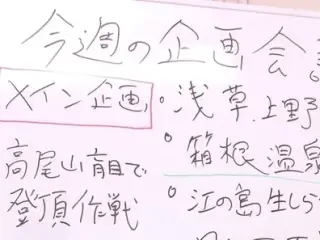 今週の企画会
メイン企画
高尾山盲目で
登頂作戦
・浅草.上野
・箱根温泉
・江の島生しら